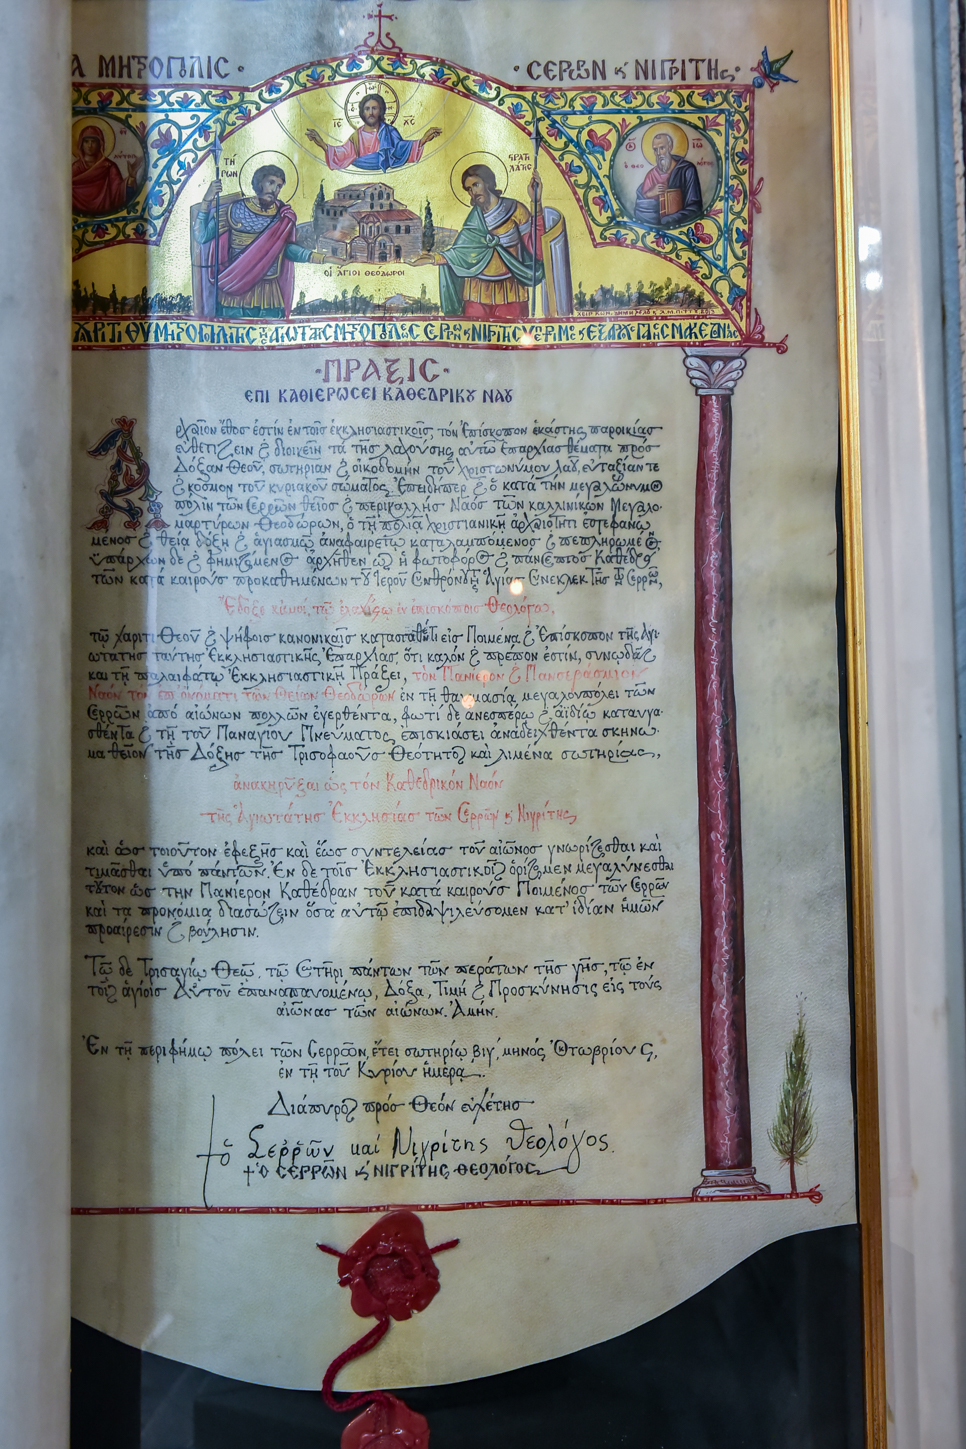 Α ΜΗΤΡΟΠΟΛΙΣ · · ΣΕΡΡΩΝ Κ ΝΙΓΡΙΤΗΣ
ΙϹ ΧϹ
ΤΗΡΩΝ
ΣΤΡΑΤΗΛΑΤΗΣ
ΟΙ ΑΓΙΟΙ ΘΕΟΔΩΡΟΙ
·ΠΡΑΞΙΣ·
ΕΠΙ ΚΑΘΙΕΡΩΣΕΙ ΚΑΘΕΔΡΙΚΟΥ ΝΑΟΥ
Ἀρχαῖον ἔθος ἐστίν ἐν τοῖς ἐκκλησιαστικοῖς, τόν Ἐπίσκοπον ἑκάστης παροικίας
εὐθετίζειν ϗ διοικεῖν τά τῆς λαχούσης αὐτῷ Ἐπαρχίας θέματα πρός
Δόξαν Θεοῦ, σωτηρίαν ϗ οἰκοδομήν τοῦ Χριστωνύμου λαοῦ, εὐταξίαν τε
ϗ κόσμον τοῦ κυριακοῦ σώματος. Ἐπειδήπερ ϗ ὁ κατά τήν μεγαλώνυμο
πόλιν τῶν Σερρῶν θεῖος ϗ περικαλλής Ναός τῶν καλλινίκων Μεγαλο-
μαρτύρων Θεοδώρων, ὁ τῇ παλαιᾷ χριστιανικῇ ἀρχαιότητι ἐστεφανω
μένος ϗ θείᾳ δόξῃ ϗ ἁγιασμῷ ἀναφαιρέτῳ καταλαμπόμενος ϗ πεπληρωμένος,
ὑπάρχων δέ ϗ φημιζόμενος ἀρχῆθεν ὡς ἡ φωτοφόρος ϗ πάνσεπτος Καθέδρα
τῶν κατά καιρούς προκαθημένων τοῦ Ἱεροῦ Συνθρόνου τῆς Ἁγίας Ἐκκλησίας τῶν Σερρῶν,
Ἔδοξε κἀμοί, τῷ ἐλαχίστῳ ἐν ἐπισκόποις Θεολόγῳ,
τῷ χάριτι Θεοῦ ϗ ψήφοις κανονικαῖς κατασταθέντι εἰς Ποιμένα ϗ Ἐπίσκοπον τῆς Ἁγι-
ωτάτης ταύτης Ἐκκλησιαστικῆς Ἐπαρχίας, ὅτι καλόν ϗ πρέπον ἐστίν, συνῳδά
καί τῇ παλαιφάτῳ Ἐκκλησιαστικῇ Πράξει, τόν Πανίερον ϗ Πανσεβάσμιον
Ναόν τόν ἐπ' ὀνόματι τῶν Θείων Θεοδώρων ἐν τῇ θαυμασίᾳ μεγαλουπόλει τῶν
Σερρῶν ἀπό αἰώνων πολλῶν ἐγερθέντα, φωτί δέ ἀνεσπέρῳ ϗ ἀϊδίῳ καταυγα-
σθέντα ϗ τῇ τοῦ Παναγίου Πνεύματος, ἐπισκιάσει ἀναδειχθέντα σκήνω-
μα θεῖον τῆς Δόξης τῆς Τρισοφαοῦς Θεότητος καί λιμένα σωτηρίας,
ἀνακηρῦξαι ὡς τόν Καθεδρικόν Ναόν
τῆς Ἁγιωτάτης Ἐκκλησίας τῶν Σερρῶν ϗ Νιγρίτης
καί ὡς τοιοῦτον ἐφεξῆς καί ἕως συντελείας τοῦ αἰῶνος γνωρίζεσθαι καί
τιμᾶσθαι ὑπό πάντων. Ἐν δέ τοῖς Ἐκκλησιαστικοῖς ὁρίζομεν μεγαλύνεσθαι
τοῦτον ὡς τήν Πανίερον Καθέδραν τοῦ κατά καιρούς Ποιμένος τῶν Σερρῶν
καί τά προνόμια διασώζειν ὅσα αὐτῷ ἐπιδαψιλεύσομεν κατ' ἰδίαν ἡμῶν
προαίρεσιν ϗ βούλησιν.
Τῷ δέ Τρισαγίῳ Θεῷ, τῷ Σωτῆρι πάντων τῶν περάτων τῆς γῆς, τῷ ἐν
τοῖς ἁγίοις Αὐτοῦ ἐπαναπαυομένῳ, Δόξα, Τιμή ϗ Προσκύνησις εἰς τούς
αἰῶνας τῶν αἰώνων. Ἀμήν.
Ἐν τῇ περιφήμῳ πόλει τῶν Σερρῶν, ἔτει σωτηρίῳ βιγ', μηνός Ὀκτωβρίου ϛ,
ἐν τῇ τοῦ Κυρίου ἡμέρᾳ.
Διάπυρος πρός Θεόν εὐχέτης
† ὁ Σερρῶν καί Νιγρίτης Θεολόγος
† Ο ΣΕΡΡΩΝ Κ ΝΙΓΡΙΤΗΣ ΘΕΟΛΟΓΟΣ